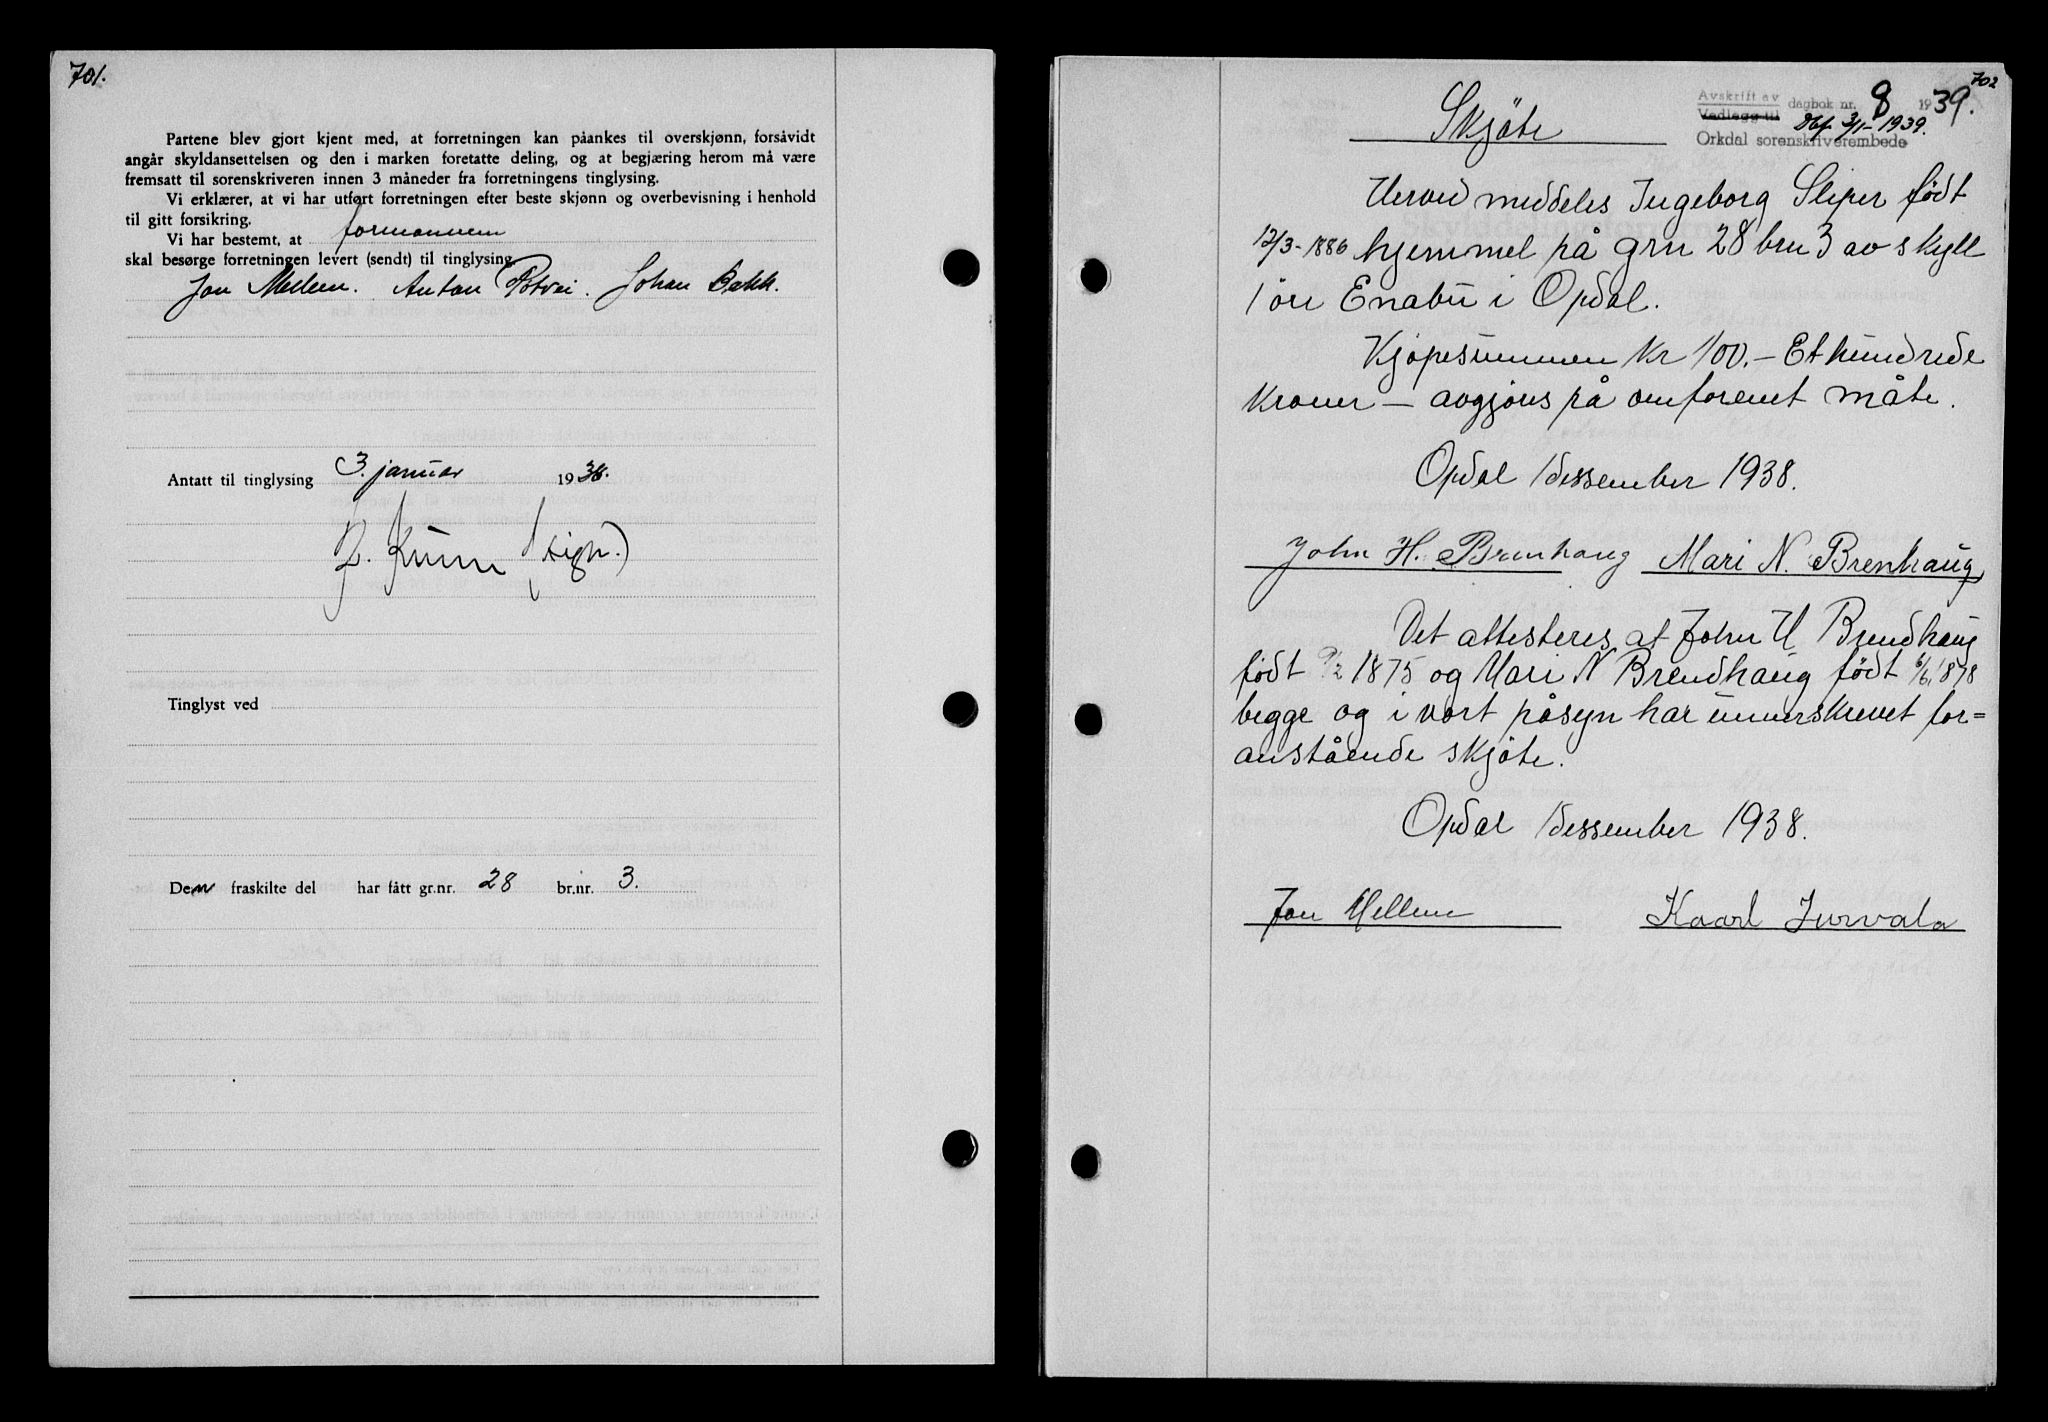 701.
Partene blev gjort kjent med, at forretningen kan påankes til overskjønn, forsåvidt
angår skyldansettelsen og den i marken foretatte deling, og at begjæring herom må være
fremsatt til sorenskriveren innen 3 måneder fra forretningens tinglysing.
Vi erklærer, at vi har utført forretningen efter beste skjønn og overbevisning i henhold
til gitt forsikring.
Vi har bestemt, at formannen
skal besørge forretningen levert (sendt) til tinglysing.
Jon Mellem. Anton Johan Bakk.
Antatt til tinglysing 3. januar 1938.
Kunn (sign.)
Tinglyst ved
Den fraskilte del har fått gr.nr. 28 br.nr. 3.
702
Avskrift av
Vedlegg til dagbok nr. 8 1939.
3/1-1939.
Orkdal sorenskriverembede
Skjöte
Herved meddeles Ingeborg Sliper født
12/3-1886 hjemmel på grn 28 brn 3 av skyll
1 öre Enabu i Opdal.
Kjöpesummen Kr 100.- Et hundrede
kroner - avgjöres på omforenet måte.
Opdal 1 dessember 1938.
John H. Brenhaug Mari N. Brenhaug
Det attesteres at John H Brendhaug
født 9/2 1875 og Mari N Brendhaug født 6/6 1878
begge og i vort påsyn har underskrevet for=
anstående skjöte.
Opdal 1 dessember 1938.
Jon Mellem Kaarl